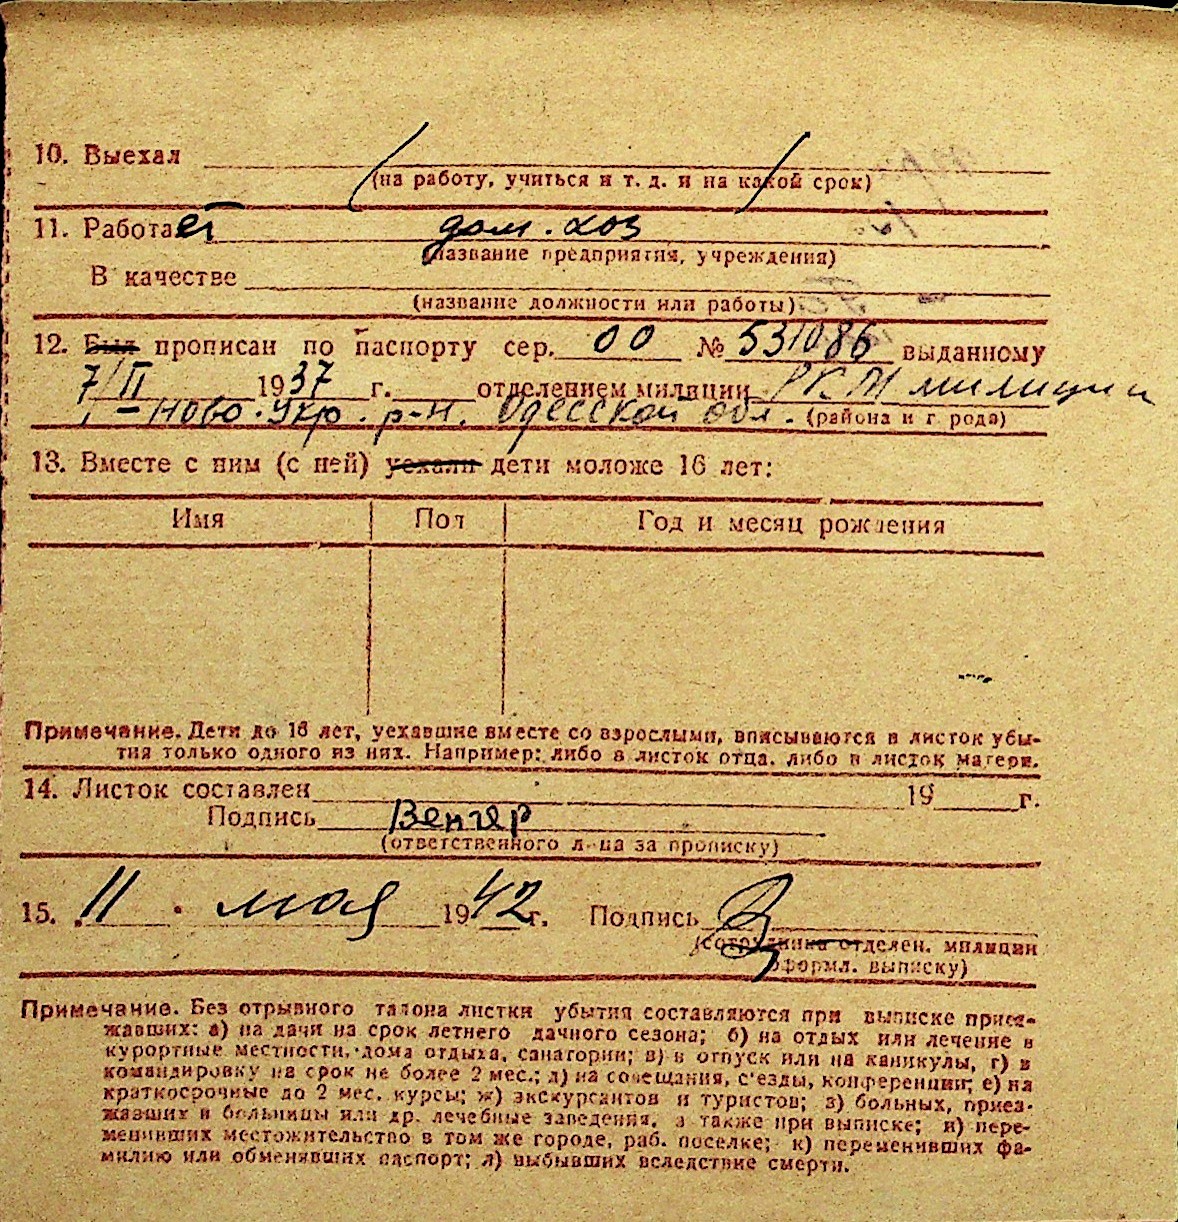 10. Выехал
(на работу, учиться и т. д. и на какой срок)
11. Работает дом. хоз
(название предприятия, учреждения)
В качестве
(название должности или работы)
12. Был прописан по паспорту сер. 00 № 531086 выданному
7/II 1937 г. отделением милиции РКМ милиции
Ново-Укр. р-н. Одесской обл. (района и города)
13. Вместе с ним (с ней) уехали дети моложе 16 лет:
Имя Пол Год и месяц рождения
Примечание. Дети до 16 лет, уехавшие вместе со взрослыми, вписываются в листок убы-
тия только одного из них. Например: либо в листок отца, либо в листок матери.
14. Листок составлен 19 г.
Подпись Венгер
(ответственного лица за прописку)
15. 11 мая 1942 г. Подпись
(сотрудника отделен. милиции
оформл. выписку)
Примечание. Без отрывного талона листки убытия составляются при выписке приез-
жавших: а) на дачи на срок летнего дачного сезона; б) на отдых или лечение в
курортные местности, дома отдыха, санатории; в) в отпуск или на каникулы, г) в
командировку на срок не более 2 мес.; д) на совещания, с'езды, конференции; е) на
краткосрочные до 2 мес. курсы; ж) экскурсантов и туристов; з) больных, приез-
жавших в больницы или др. лечебные заведения, а также при выписке; и) пере-
менивших местожительство в том же городе, раб. поселке; к) переменивших фа-
милию или обменявших паспорт; л) выбывших вследствие смерти.